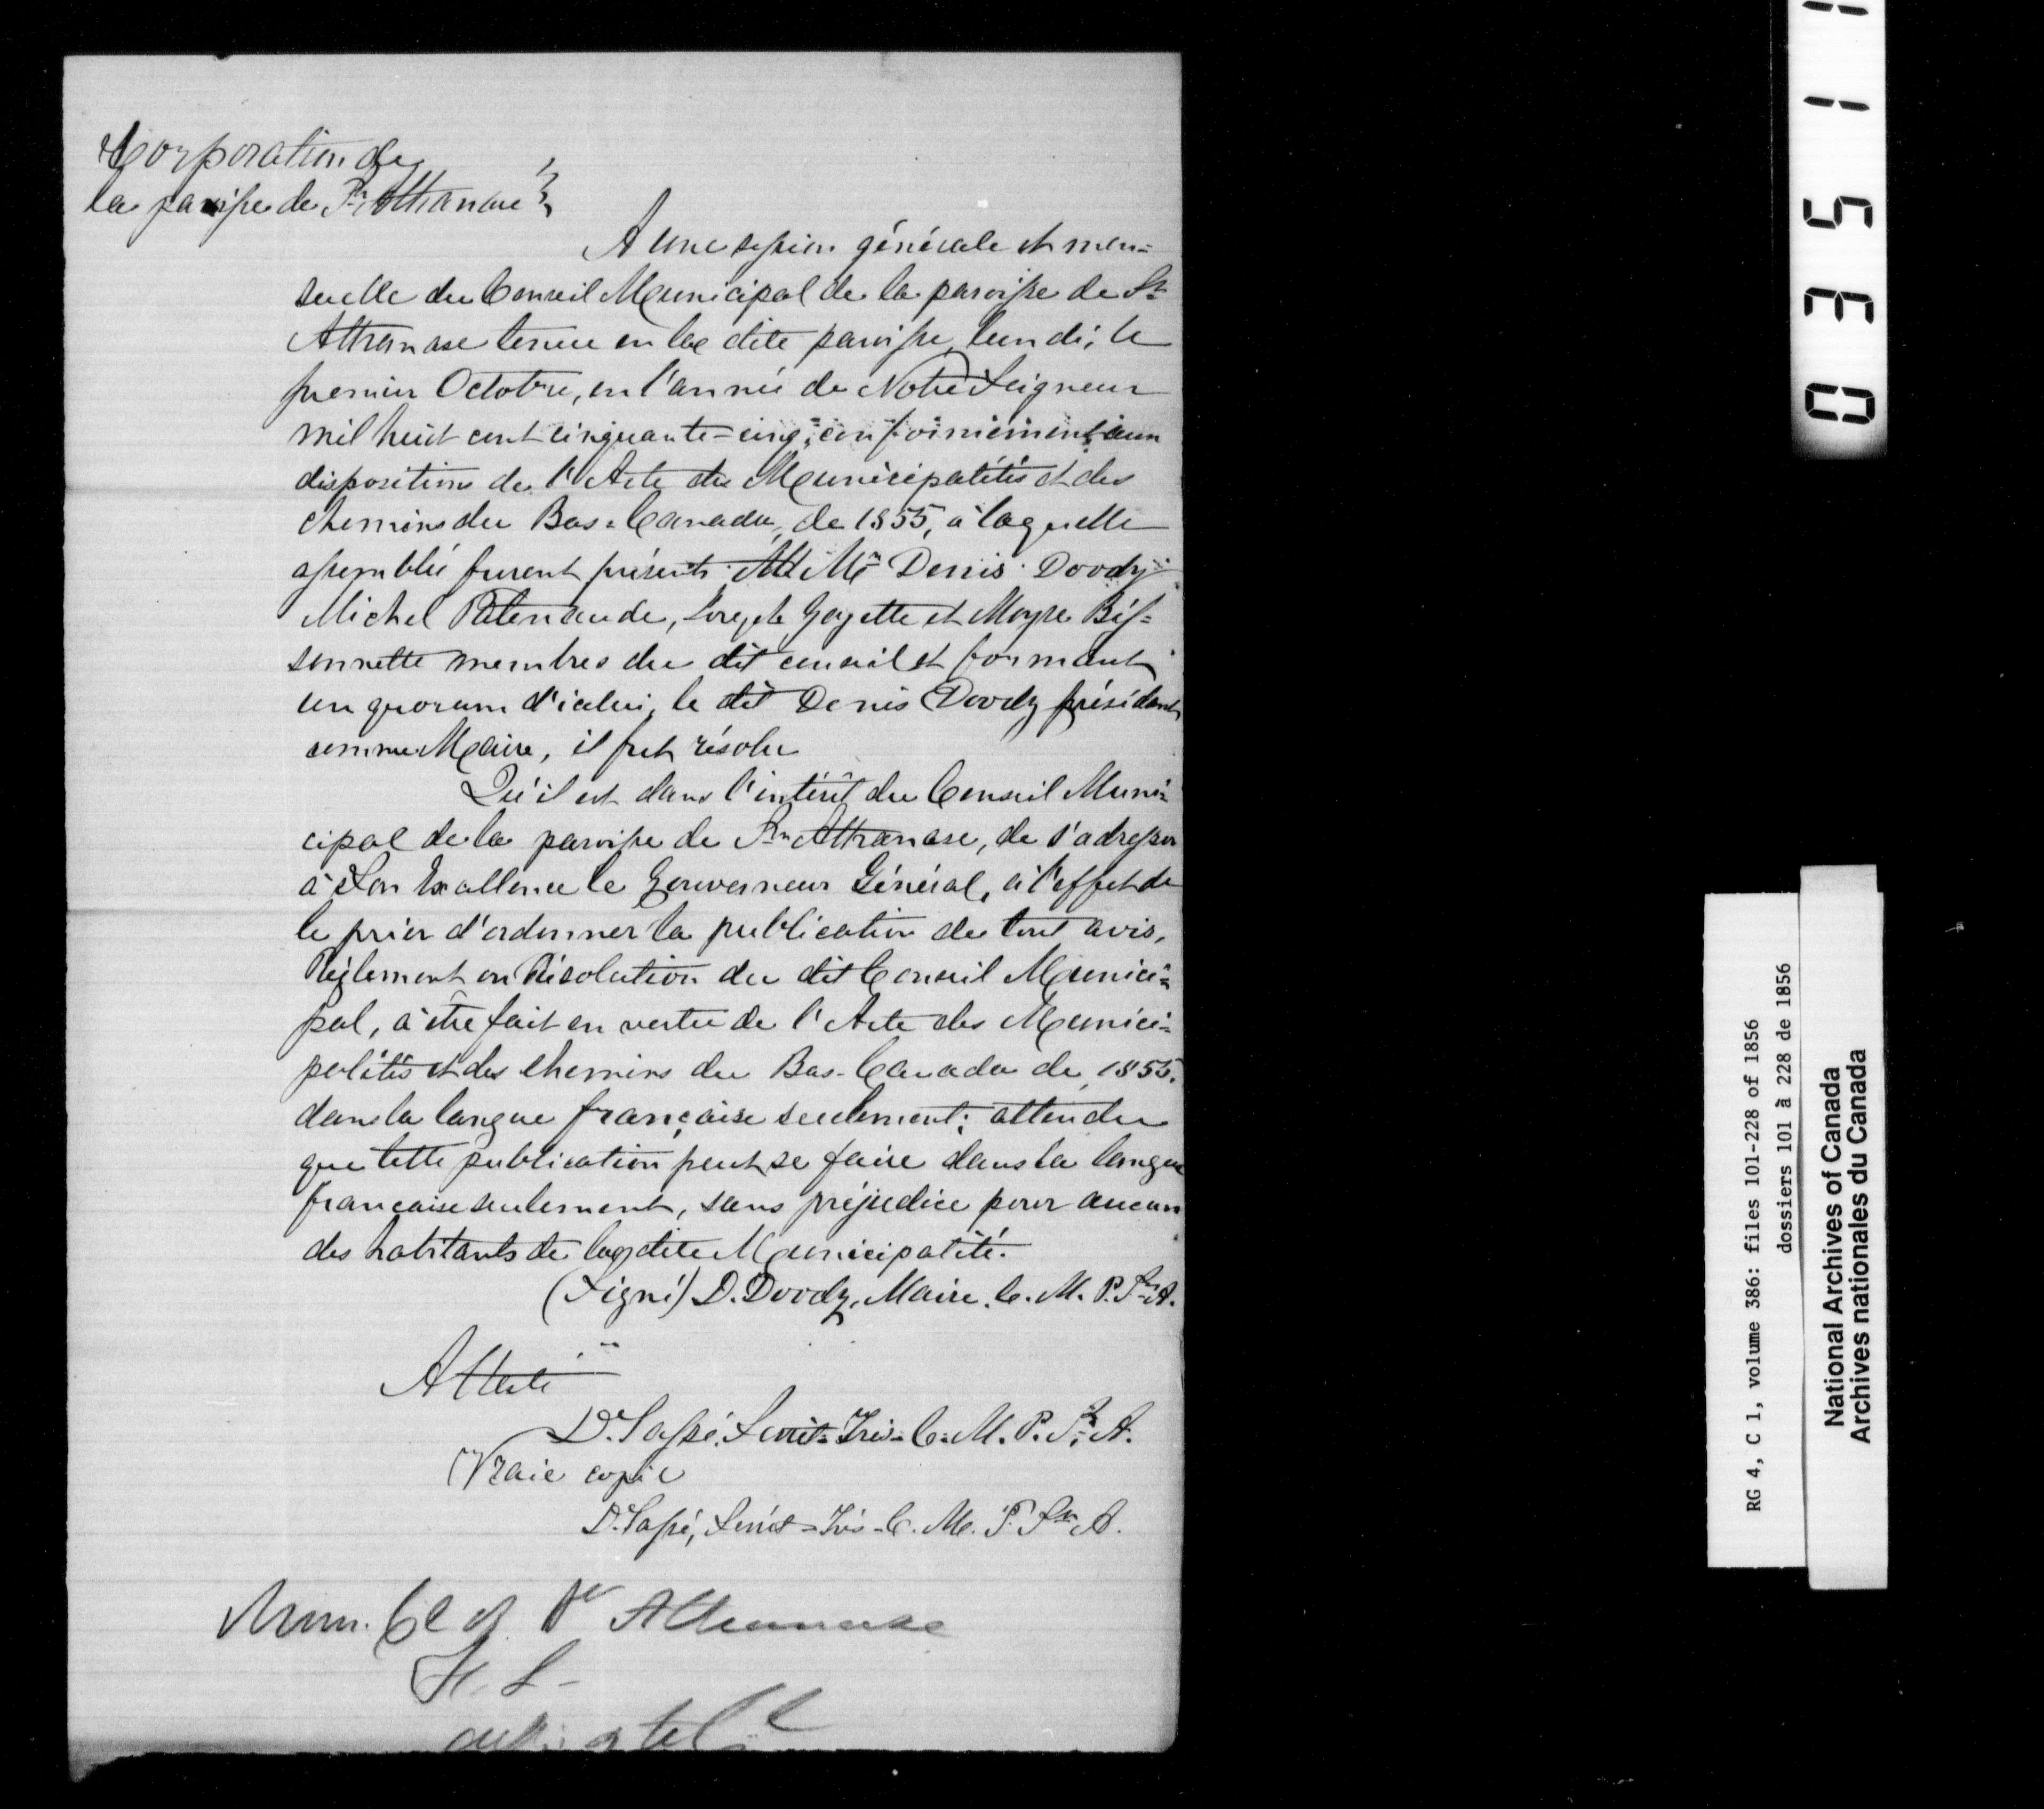 Corporation de
la paroisse de St Athanase
A une session générale et men=
suelle du Conseil Municipal de la paroisse de St
Athanase tenue en la dite paroisse, lundi, le
premier Octobre, en l'année de Notre Seigneur
mil huit cent cinquante=cinq, conformément aux
dispositions de l'Acte des Municipalités et des
chemins du Bas=Canada, de 1855, à laquelle
assemblée furent présents MM Denis Doody
Michel Patenaude, Joseph Goyette et Moyse Bis=
sonnette membres du dit conseil et formant
un quorum d'icelui, le dit Denis Doody présidant
comme Maire, il fut résolu
Qu'il est dans l'intérêt du Conseil Muni=
cipal de la paroisse de St Athanase, de s'adresser
à Son Excellence le Gouverneur Général, à l'effet de
le prier d'ordonner la publication de tout avis,
Règlement ou Résolution du dit Conseil Munici=
pal, à être fait en vertu de l'Acte des Munici=
palités et des chemins du Bas-Canada de 1855.
dans la langue française seulement; attendu
que cette publication peut se faire dans la langue
française seulement, sans préjudice pour aucun
des habitants de la dite Municipalité.
(Signé) D. Doody, Maire. C. M. P. St A.
Attesté
D. Tassé, Secrét=Trés=C. M. P. St A.
Vraie copie
D. Tassé, Secrét=Trés-C. M. P. St A.
Mun. Cl of St Athanase
03511
RG 4, C 1, volume 386: files 101-228 of 1856
dossiers 101 à 228 de 1856
National Archives of Canada
Archives nationales du Canada